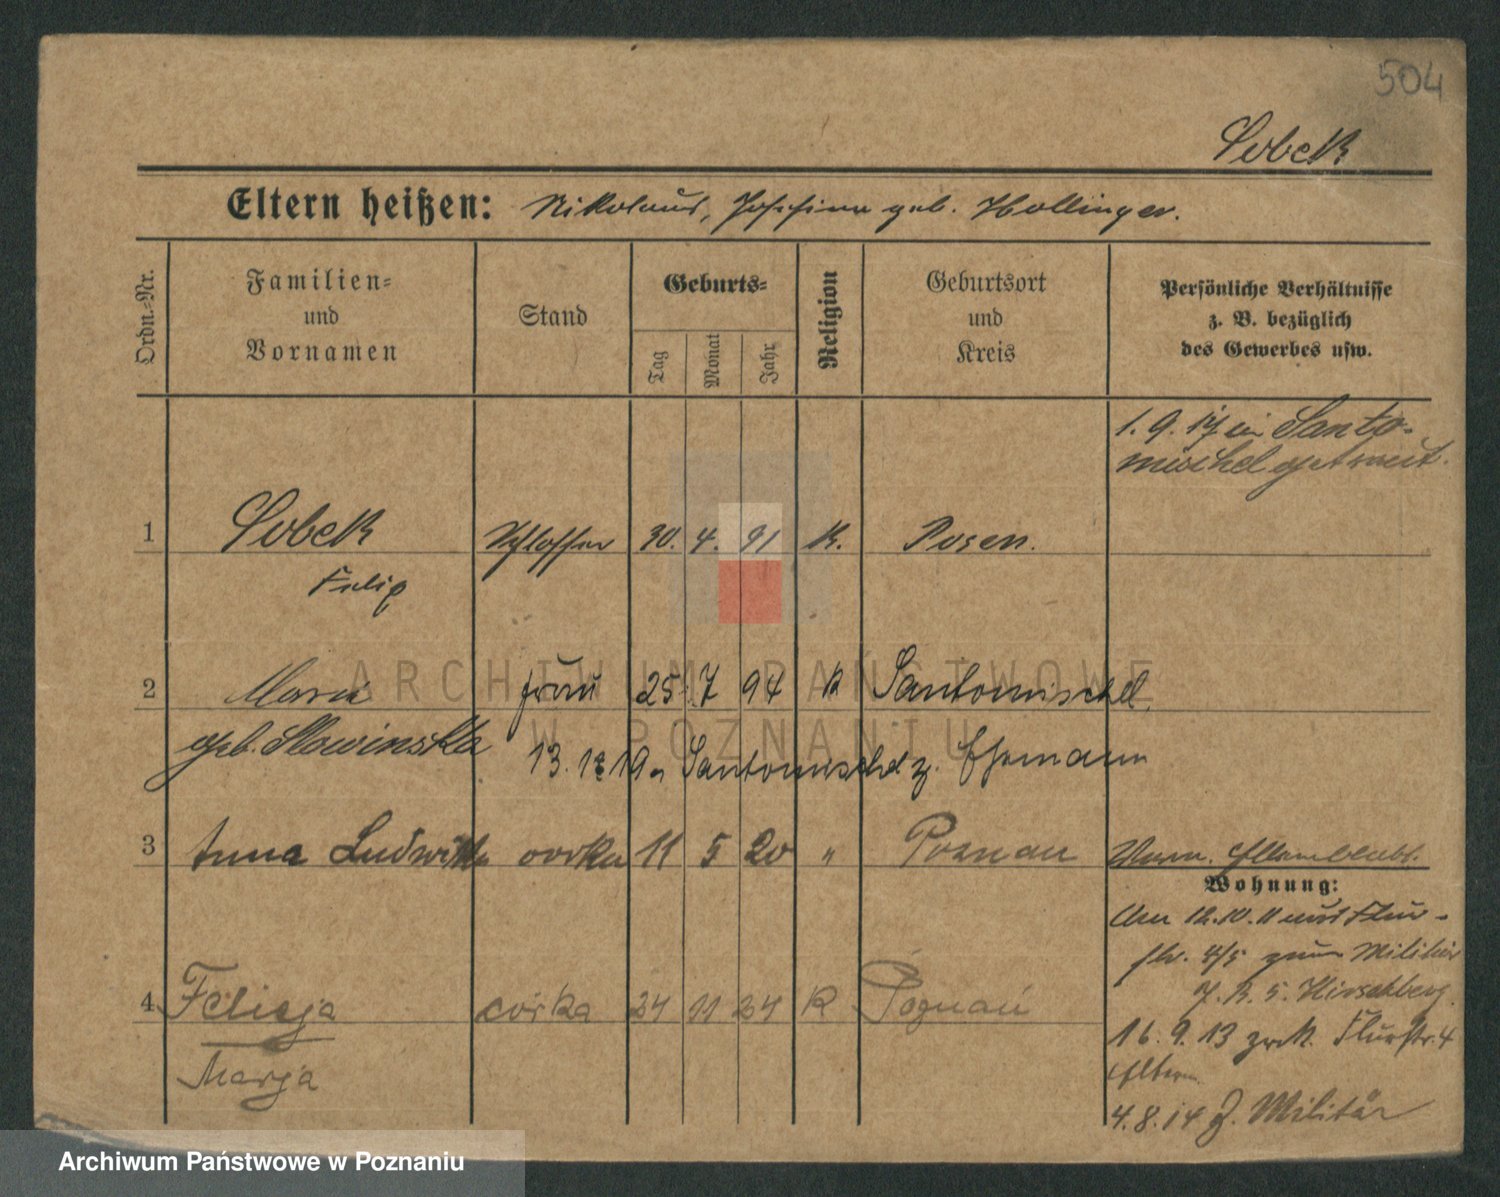 504
Sobek
Eltern heißen: Nikolaus, Josefina geb. Hollinger.
Ordn.-Nr.
Familien-
und
Vornamen
Stand
Geburts-
Tag
Monat
Jahr
Religion
Geburtsort
und
Kreis
Persönliche Verhältnisse
z. B. bezüglich
des Gewerbes usw.
1. 9. 17 in Santo-
mischel getraut.
1 Sobek Schlosser 30. 4. 91 K. Posen.
Felix
2 Maria Frau 25. 7 94 K Santomischel
geb. Slowinska
13. 12 19 n Santomischel z. Ehemann
3 Anna Ludwika córka 11 5 20 " Poznań
Wohnung:
Am 12.10.11 Flur-
str. 4/5 zum Militär
J. R. 5. Hirschberg.
4 Felicja córka 24 11 24 K Poznań
Marja
16. 9. 13 zrk. Flurstr. 4
Eltern
4. 8. 14 z. Militär
ARCHIWUM PAŃSTWOWE
W POZNANIU
Archiwum Państwowe w Poznaniu